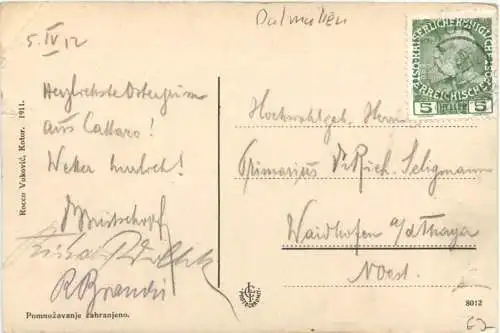 Dalmatien
5. IV 12
Herzlichste Ostergrüsse
aus Cattaro!
Wetter herrlich!
R Brandis
Rocco Vuković, Kotor. 1911.
Pomnožavanje zabranjeno.
KAISERLICHE KÖNIGLICHE ÖSTERREICHISCHE POST
5 5
Hochwohlgeb. Herrn
Primarius Dr Rich. Seligmann
Waidhofen a/d Thaya
N Oest.
8012